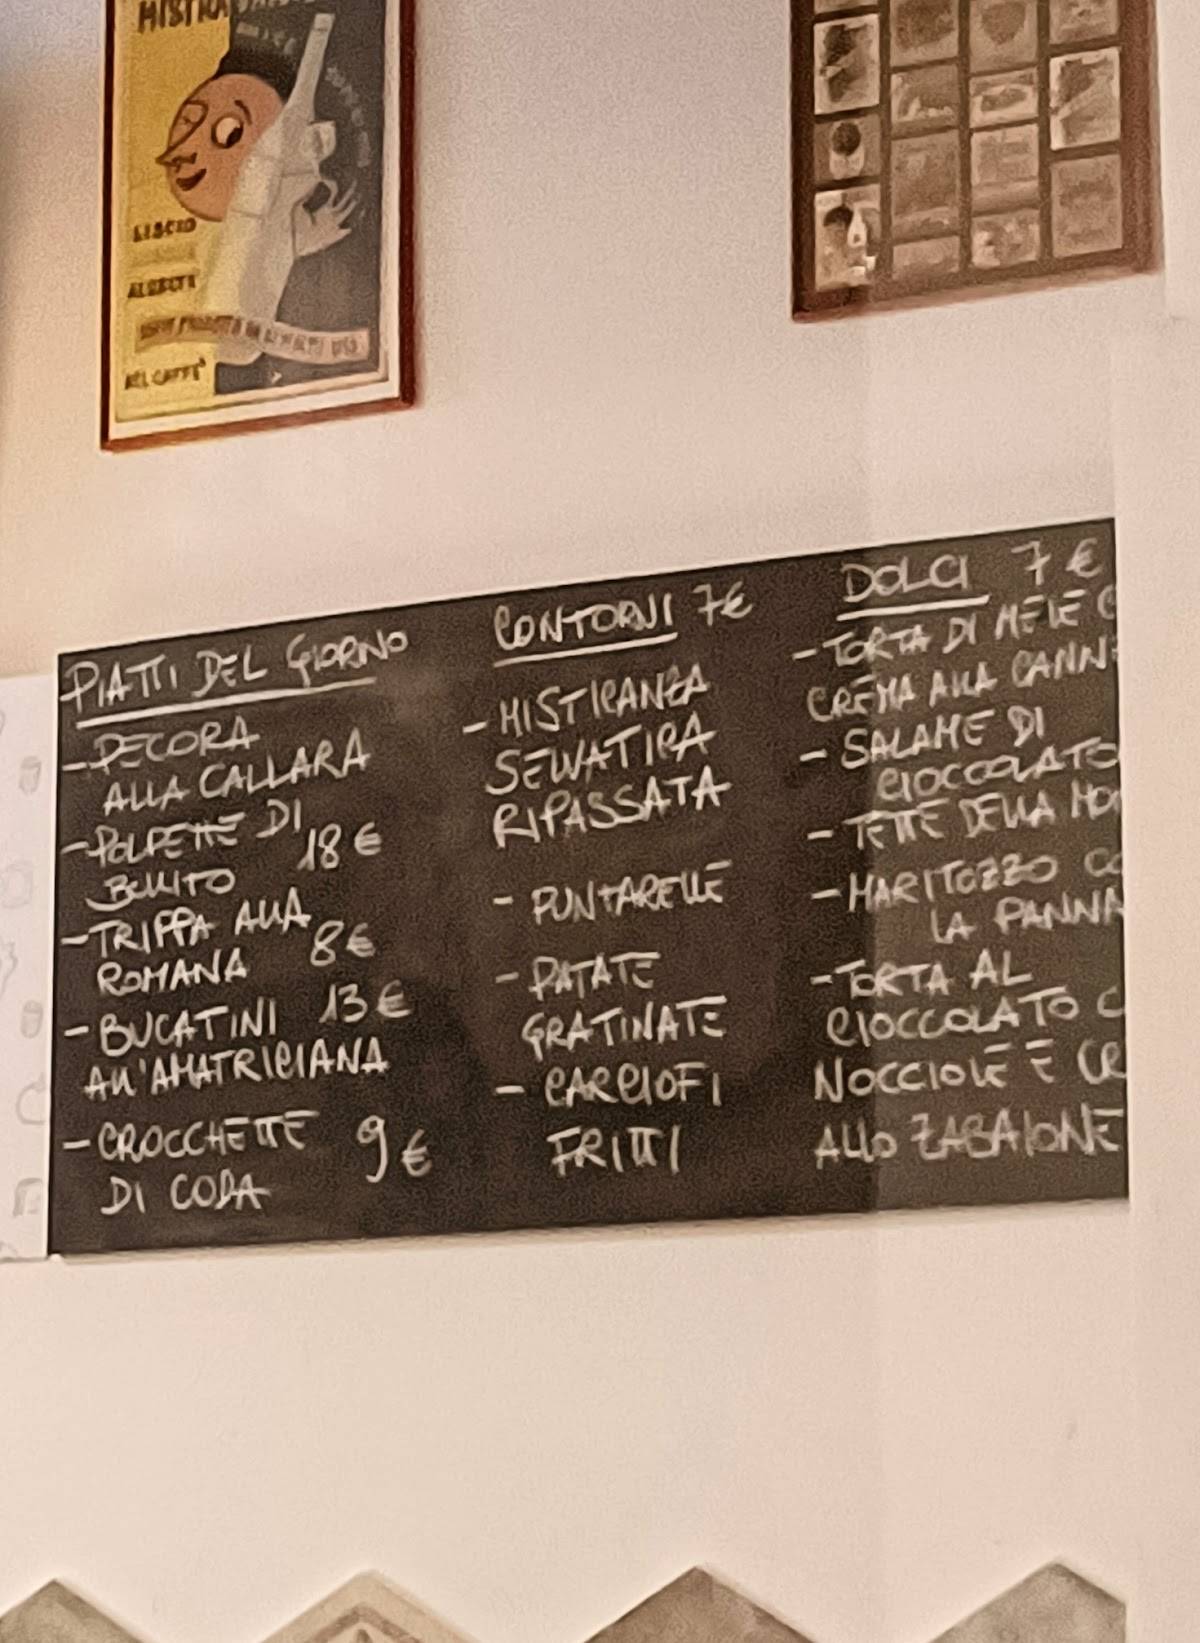 MISTRA
LISCIO
NEL CAFFE'
PIATTI DEL GIORNO
-PECORA
ALLA CALLARA
-POLPETTE DI
BOLLITO 18 €
-TRIPPA ALLA
ROMANA 8€
-BUCATINI 13 €
ALL'AMATRICIANA
-CROCCHETTE 9 €
DI CODA
CONTORNI 7€
-MISTICANZA
SELVATICA
RIPASSATA
- PUNTARELLE
- PATATE
GRATINATE
- CARCIOFI
FRITTI
DOLCI 7 €
-TORTA DI MELE C
CREMA ALLA CANN
- SALAME DI
CIOCCOLATO
- TETTE DELLA MO
-MARITOZZO CO
LA PANNA
-TORTA AL
CIOCCOLATO C
NOCCIOLE E CR
ALLO ZABAIONE